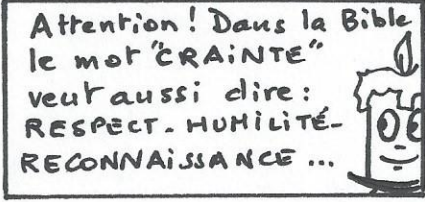 Attention ! Dans la Bible
le mot "CRAiNTE"
veut aussi dire :
RESPECT - HUMiLiTÉ -
RECONNAiSSANCE ...